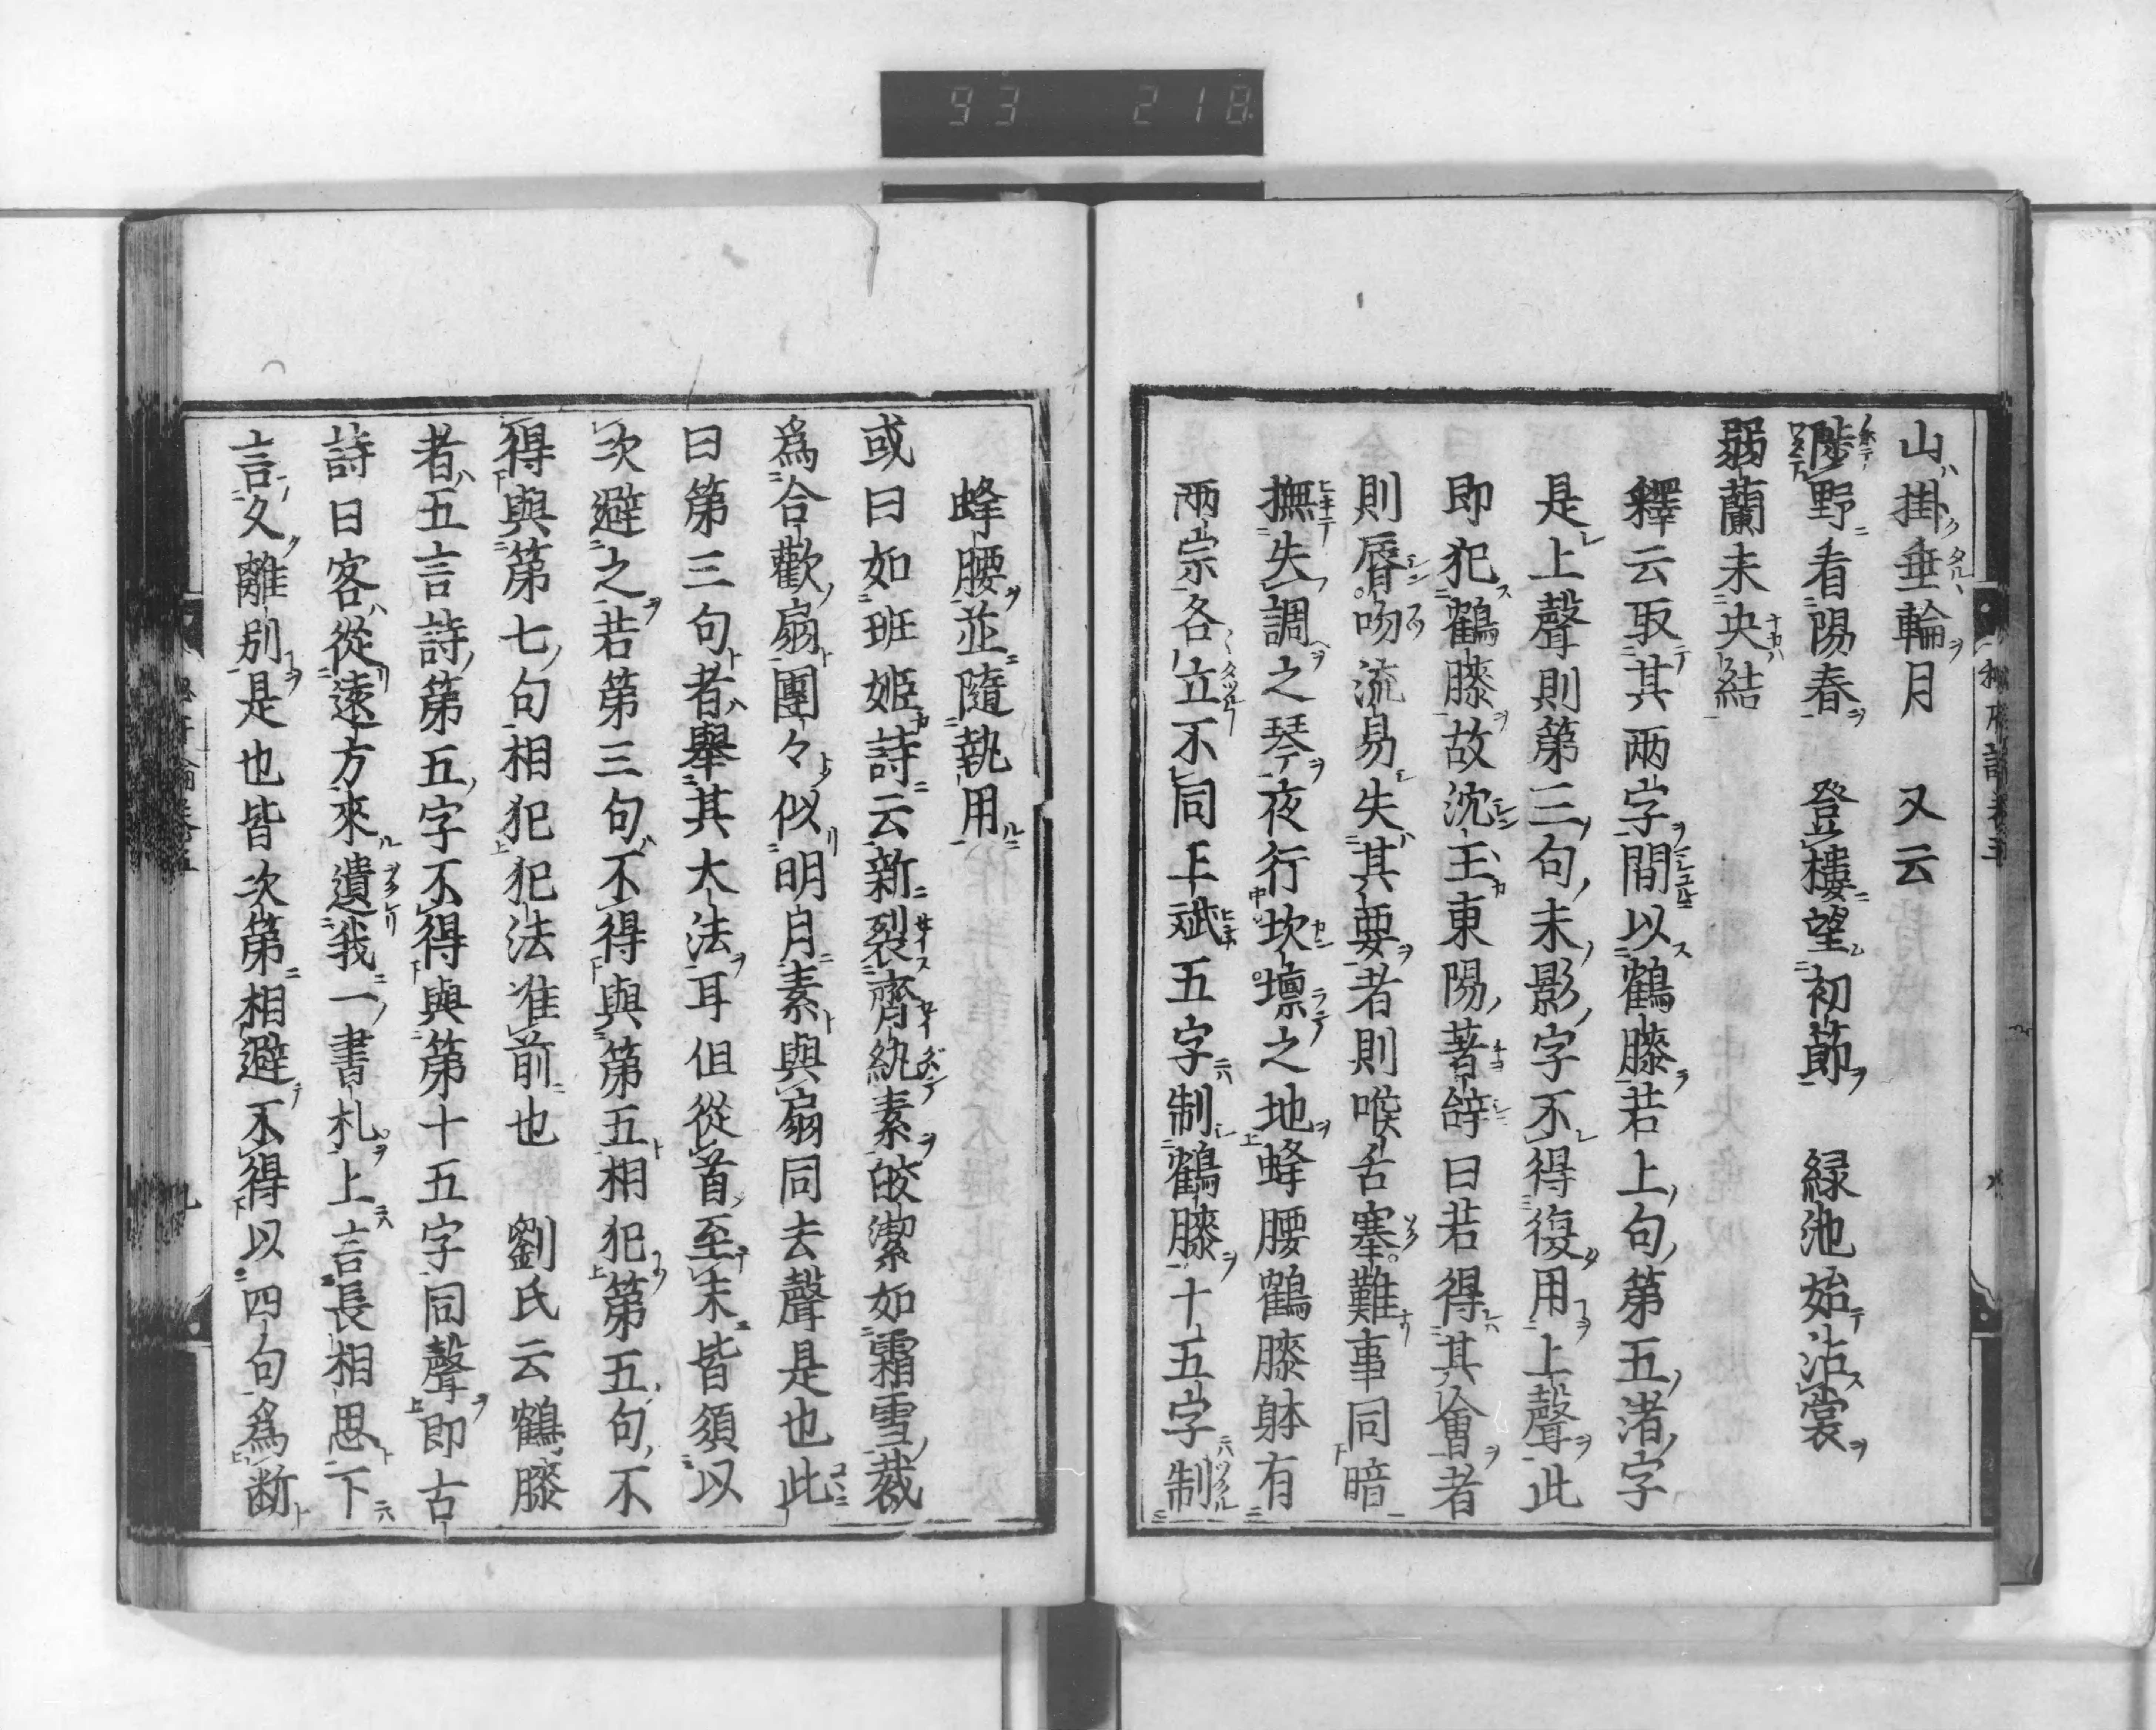 93 218
山掛垂輪月　又云
陟野看陽春　登樓望初節　緑池始沾裳
弱蘭未央結
釋云取其兩字間以鶴膝若上句第五渚字
是上聲則第三句未影字不得復用上聲此
即犯鶴膝故沈王東陽著辝曰若得其會者
則脣吻流易失其要者則喉舌塞難事同暗
撫失調之琴夜行坎壈之地蜂腰鶴膝躰有
兩宗各立不同王斌五字制鶴膝十五字制
蜂腰並隨執用
或曰如班姬詩云新裂齊紈素皎潔如霜雪裁
爲合歡扇團々似明月素與扇同去聲是也此
曰第三句者舉其大法耳但從首至末皆須以
次避之若第三句不得與第五相犯第五句不
得與第七句相犯犯法准前也　劉氏云鶴膝
者五言詩第五字不得與第十五字同聲即古
詩曰客從遠方來遺我一書札上言長相思下
言久離別是也皆次第相避不得以四句爲断